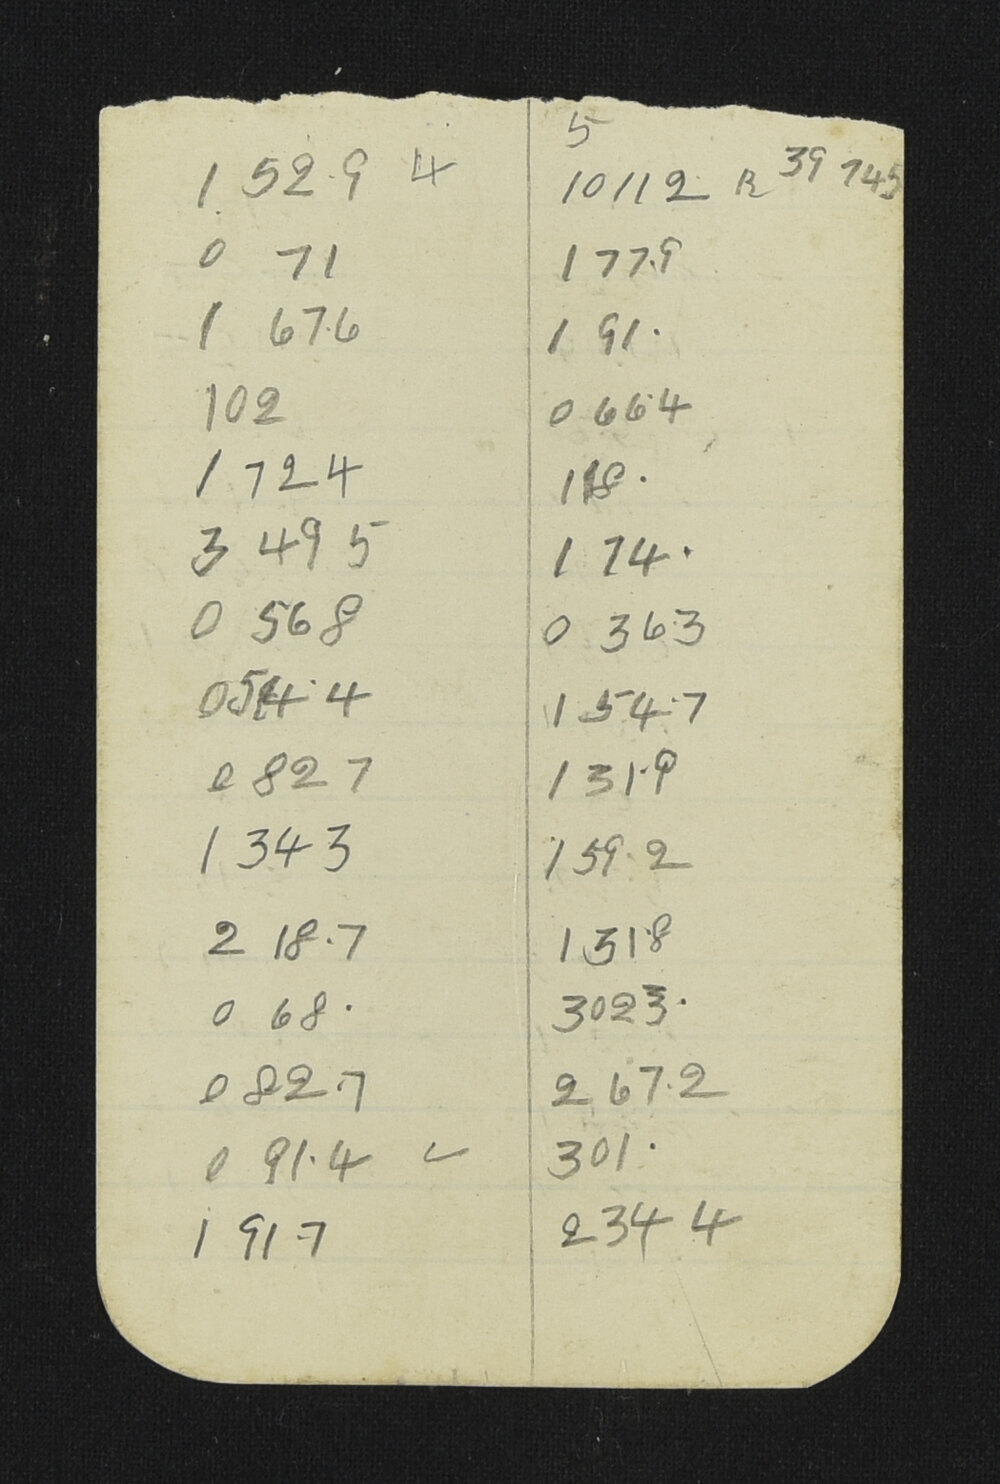 1 52.9 4
0 71
1 67.6
102
1 724
3 49 5
0 568
054.4
0 82 7
1 343
2 18.7
0 68.
0 82.7
0 91.4 ✓
1 91.7
5
10112 R 39 745
1 77.9
1 91.
0 66.4
118.
1 74.
0 36.3
1 54.7
1 31.9
1 59.2
1 31.8
3023.
2 67.2
301.
234 4